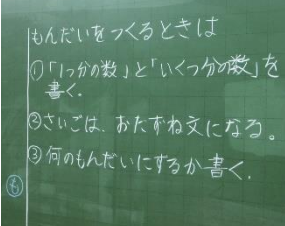 もんだいをつくるときは
①「1つ分の数」と「いくつ分の数」を
書く.
②さいごは、おたずね文になる。
③何のもんだいにするか書く.
も